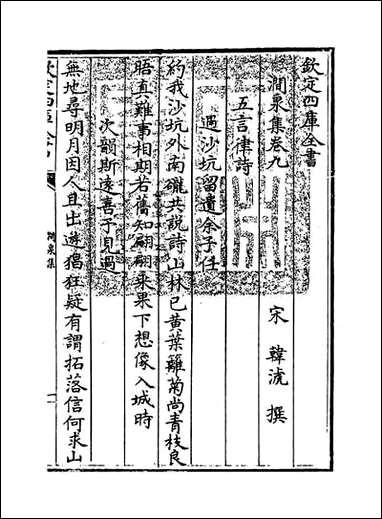 欽定四庫全書
澗泉集卷九
宋 韓淲 撰
五言律詩
過沙坑留遺余子任
約我沙坑外南礲共説詩山林已黄葉籬菊尚青枝良
晤直難事相期若舊知翩翩乘果下想像入城時
次韻斯逺喜子見過
無地尋明月因人且出遊猖狂疑有謂拓落信何求山
欽定四庫全書
澗泉集
一